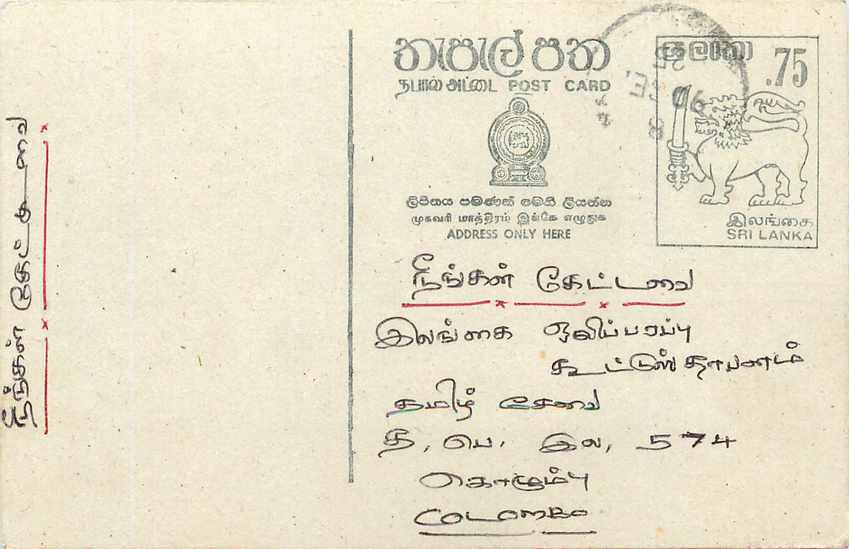 நீங்கள் கேட்டவை
තැපැල් පත
தபால் அட்டை POST CARD
ලිපිනය පමණක් මෙහි ලියන්න
முகவரி மாத்திரம் இங்கே எழுதுக
ADDRESS ONLY HERE
ශ්‍රී ලංකා
.75
இலங்கை
SRI LANKA
நீங்கள் கேட்டவை
இலங்கை ஒலிபரப்பு
கூட்டுஸ்தாபனம்
தமிழ் சேவை
த, பெ. இல, 574
கொழும்பு
COLOMBO